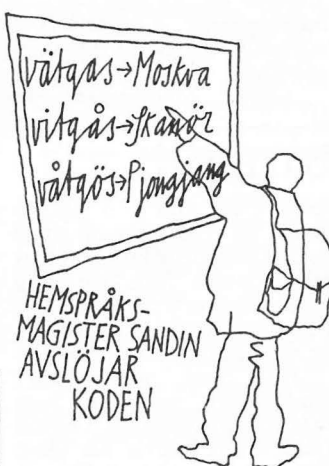 vätgas→Moskva
vitgås→Skanör
våtgös→Pjongjang
HEMSPRÅKS-
MAGISTER SANDIN
AVSLÖJAR
KODEN